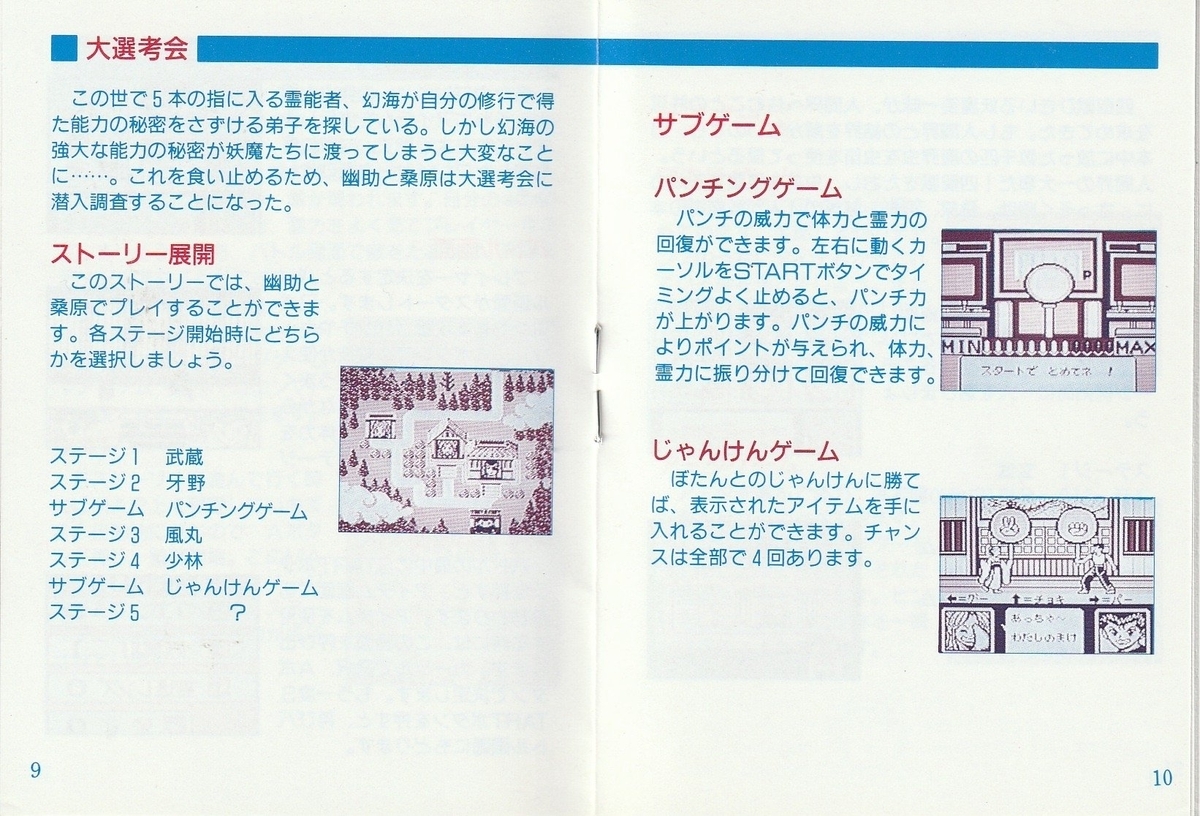 大選考会
この世で5本の指に入る霊能者、幻海が自分の修行で得
た能力の秘密をさずける弟子を探している。しかし幻海の
強大な能力の秘密が妖魔たちに渡ってしまうと大変なこと
に……。これを食い止めるため、幽助と桑原は大選考会に
潜入調査することになった。
ストーリー展開
このストーリーでは、幽助と
桑原でプレイすることができま
す。各ステージ開始時にどちら
かを選択しましょう。
ステージ1 武蔵
ステージ2 牙野
サブゲーム パンチングゲーム
ステージ3 風丸
ステージ4 少林
サブゲーム じゃんけんゲーム
ステージ5 ?
9
サブゲーム
パンチングゲーム
パンチの威力で体力と霊力の
回復ができます。左右に動くカ
ーソルをSTARTボタンでタイ
ミングよく止めると、パンチ力
が上がります。パンチの威力に
よりポイントが与えられ、体力、
霊力に振り分けて回復できます。
P
MIN MAX
スタートで とめてネ !
じゃんけんゲーム
ぼたんとのじゃんけんに勝て
ば、表示されたアイテムを手に
入れることができます。チャン
スは全部で4回あります。
←=グー ↑=チョキ →=パー
あっちゃ〜
わたしのまけ
10